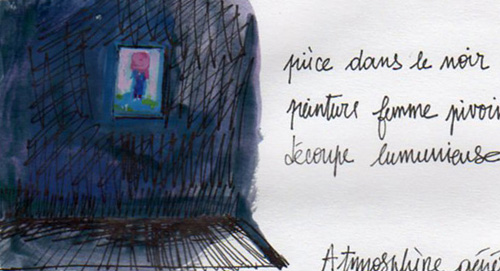 pièce dans le noir
peinture femme pivoin
découpe lumineuse
Atmosphère géné